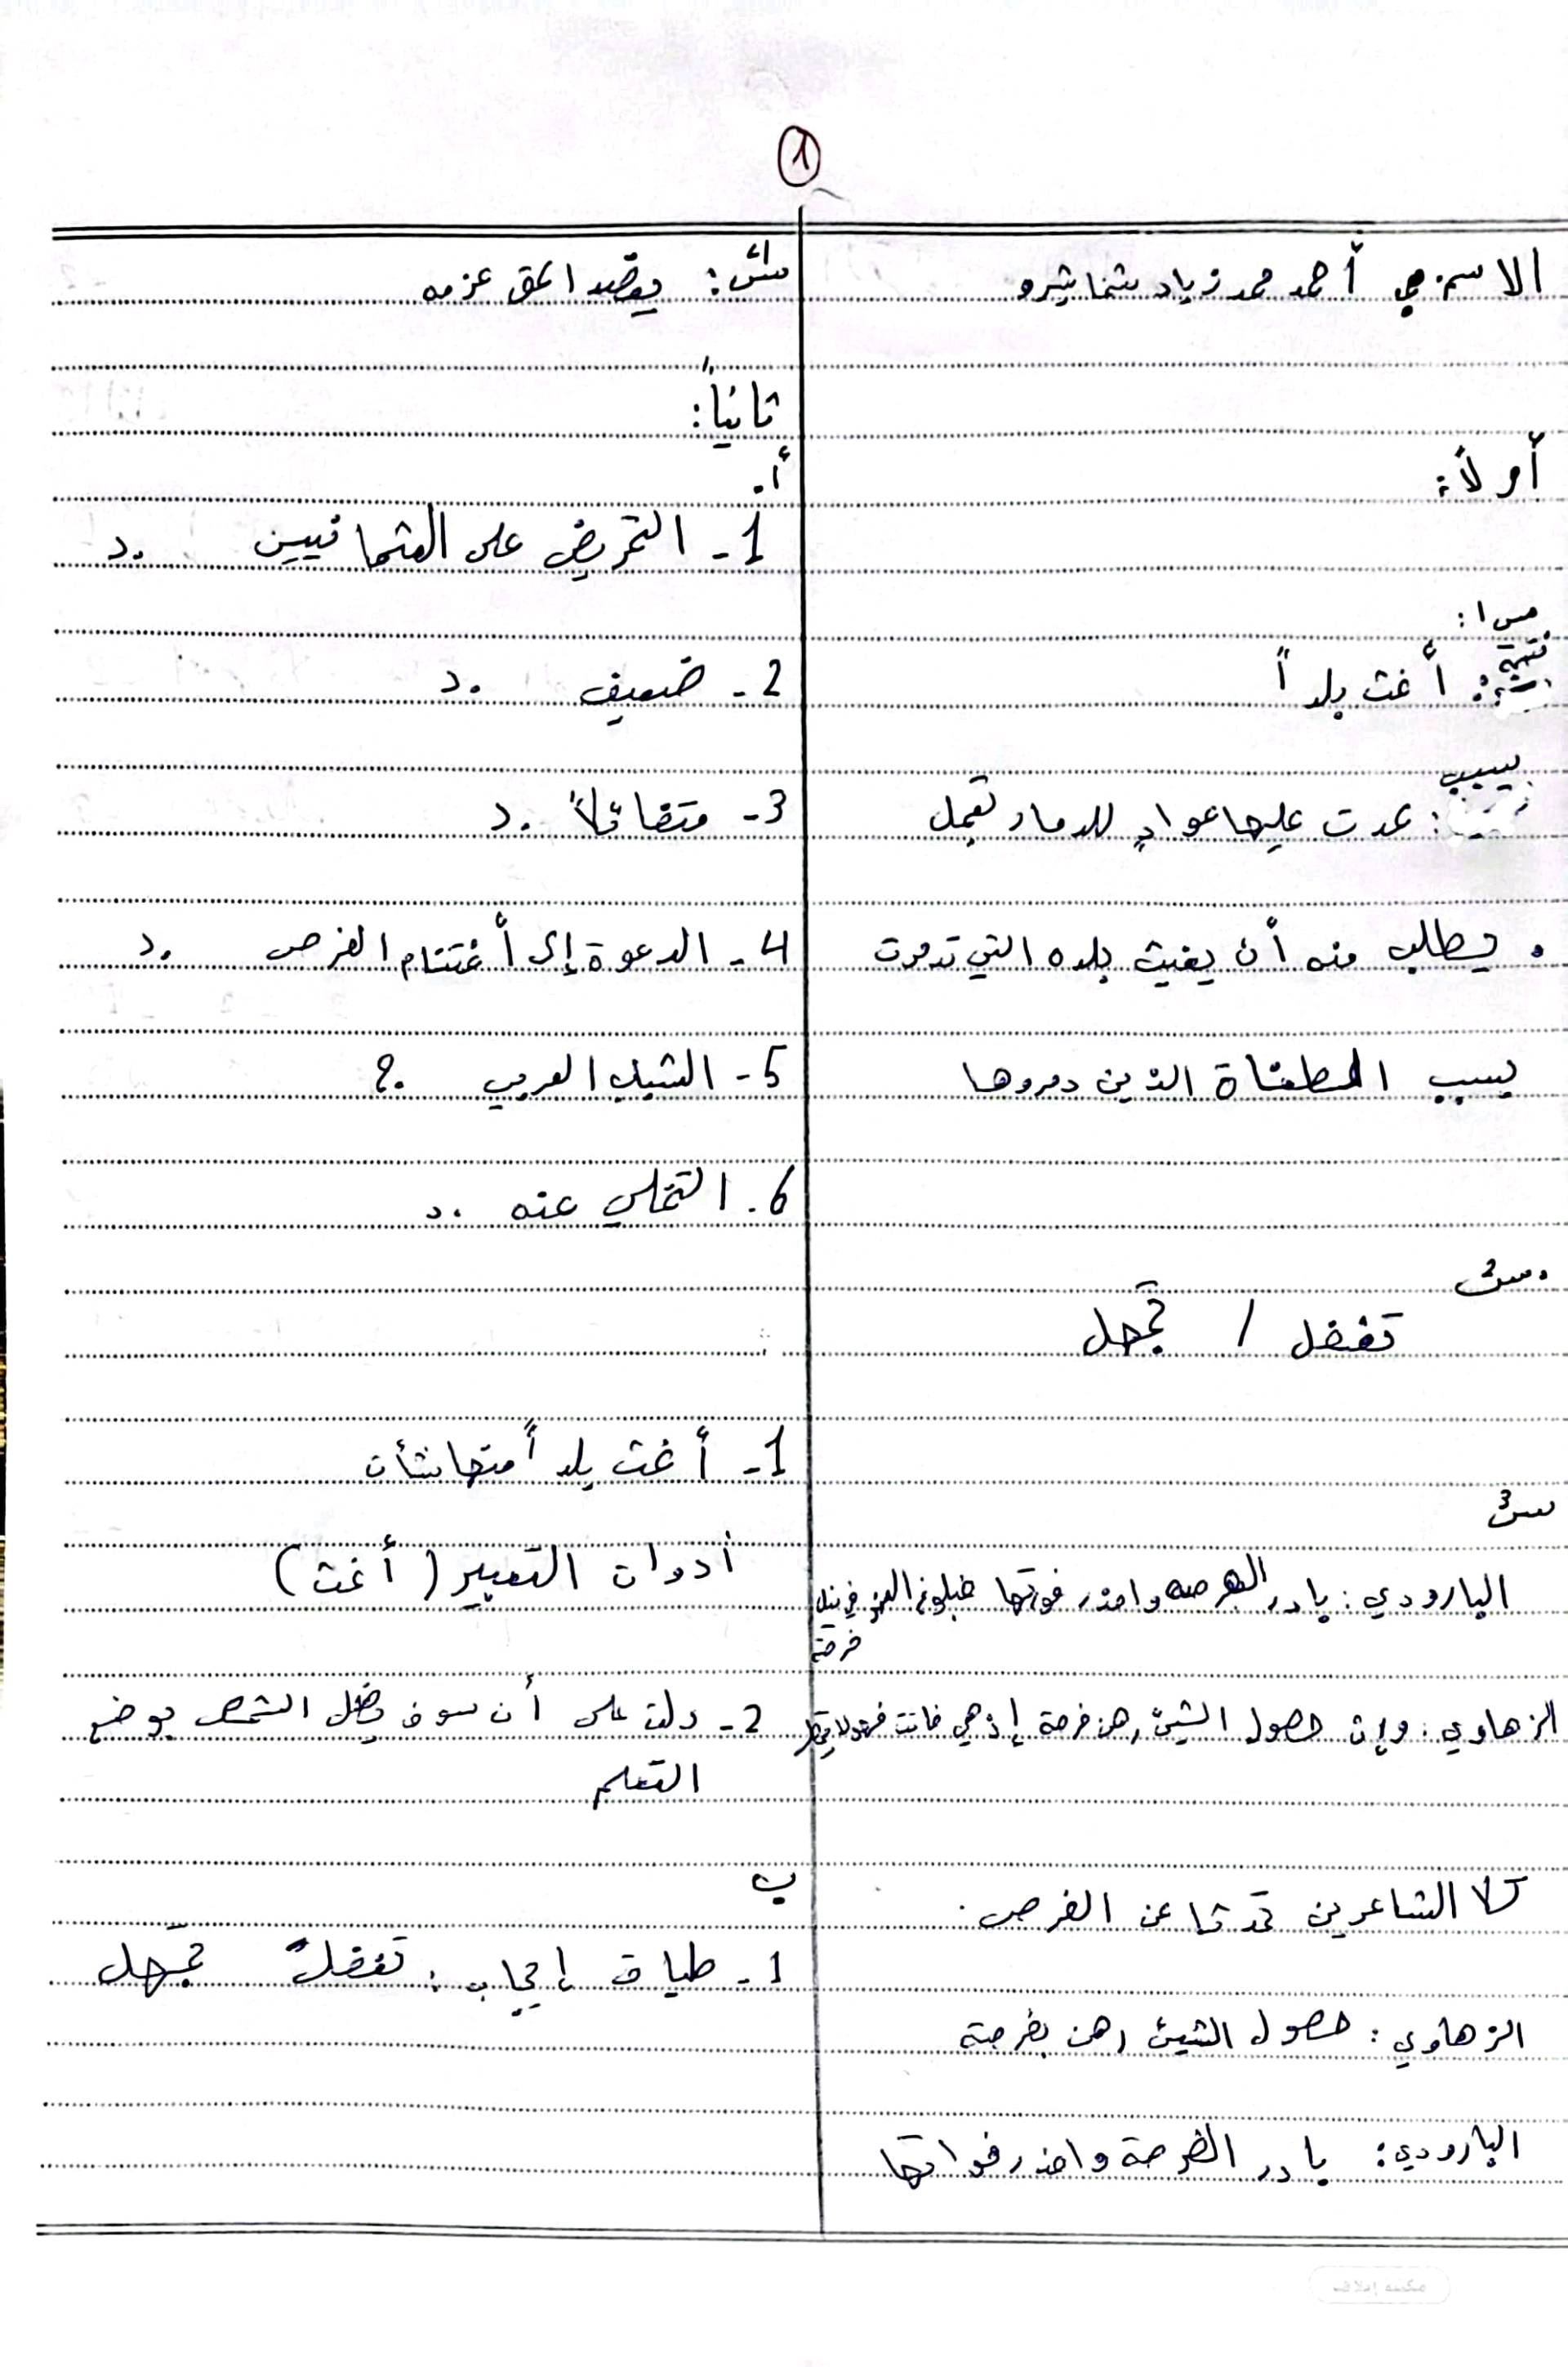 ١
الاسم: أحمد محمد زياد شماشيرو
أولاً:
س١:
نتيجة: أغث بلداً
بسبب: عدت عليها عوادٍ للدمار تعجل
. يطلب منه أن يغيث بلده التي تدمرت
بسبب الطغاة الذين دمروها
س2
تغفل / تجهل
س3
البارودي: بادر الفرصة واحذر فوتها فبلوغ العز في نيل
فرصة
الزهاوي: وإن حصول الشيء رهن فرصة إذ هي فاتت
كلا الشاعرين تحدثا عن الفرص.
الزهاوي: حصول الشيئ رهن بفرصة
البارودي: بادر الفرصة واحذر فواتها
يقصد الحق عزمه
ثانياً:
أ.
1- التحريض على العثمانيين .د
2- ضعيف .د
3- متفائلاً .د
4- الدعوة إلى أغتنام الفرص .د
5- الشباب العربي .
6. التخلي عنه .د
1- أغث بلداً
أدوات التعبير (أغث)
2- دلت على أن سوف يظل الشخص بوضع
التعلم
ب
1- طباق إيجاب: تغفل تجهل